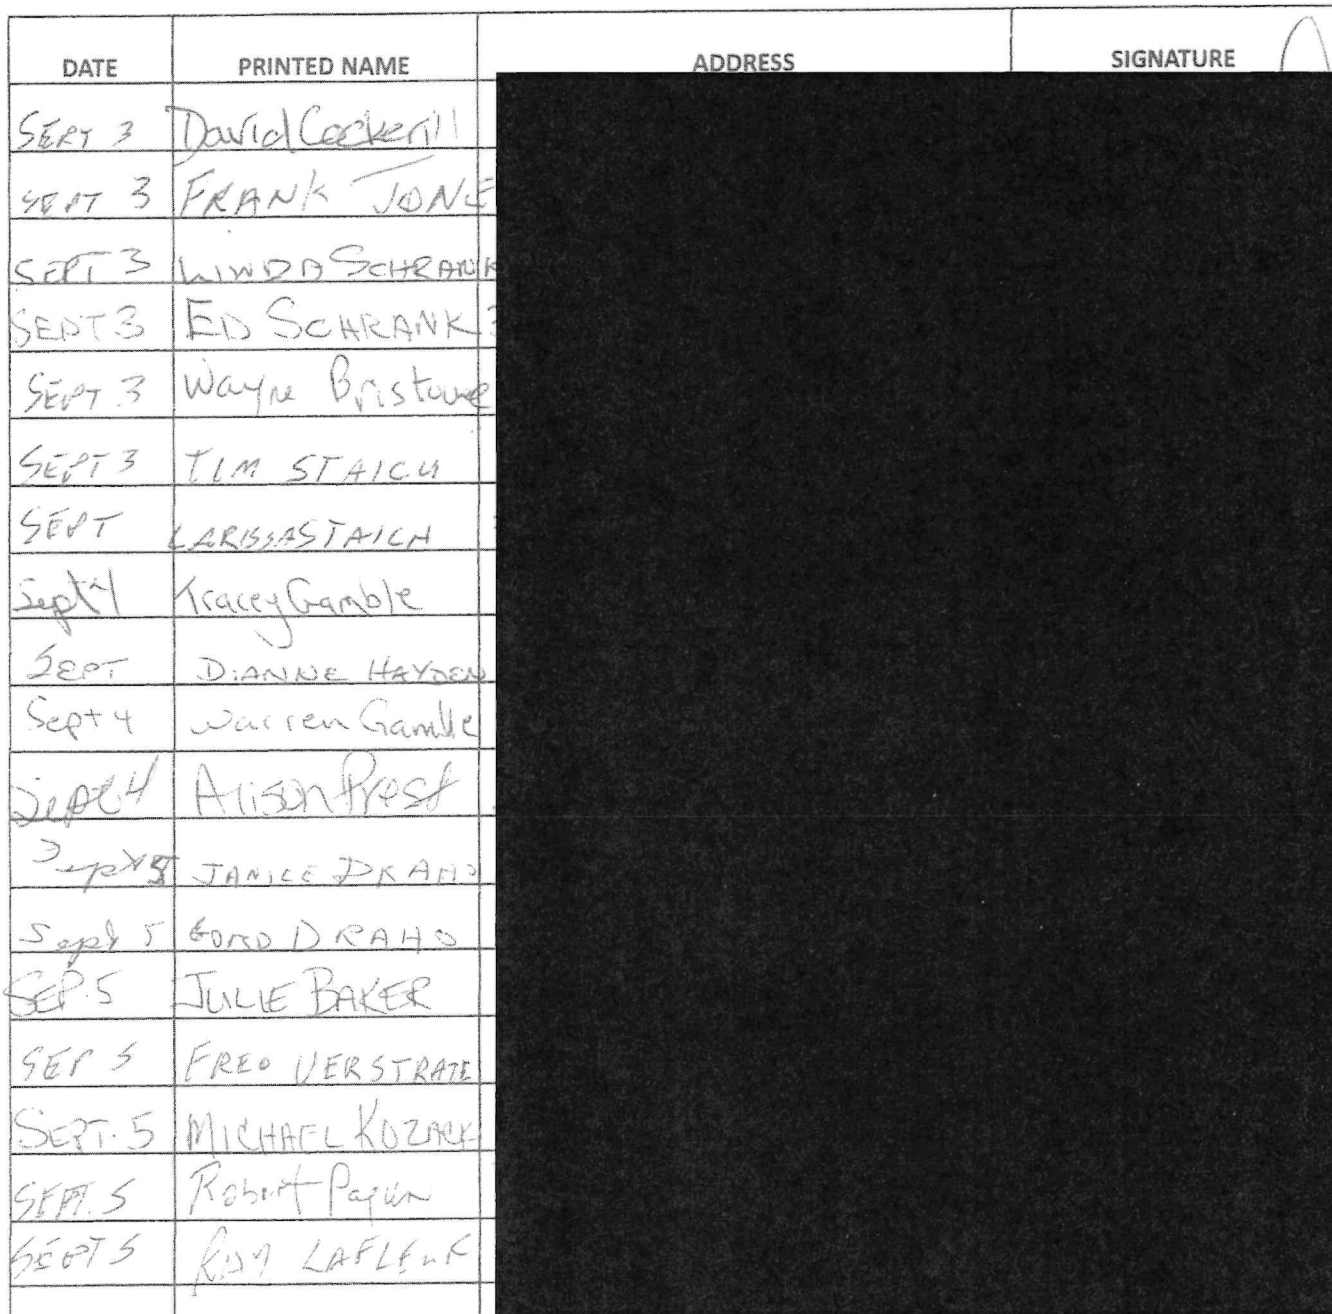 DATE PRINTED NAME ADDRESS SIGNATURE
SEPT 3 David Cockerill
SEPT 3 FRANK JONE
SEPT 3 LINDA SCHRANK
SEPT 3 ED SCHRANK
SEPT 3 Wayne Bristowe
SEPT 3 TIM STAICU
SEPT LARISSA STAICU
Sept 4 Tracey Gamble
SEPT DIANNE HAYDEN
Sept 4 Warren Gamble
Sept 4 Alison Prest
Sept 5 JANICE DRAHO
Sept 5 GORD DRAHO
SEP. 5 JULIE BAKER
SEP 5 FRED VERSTRATE
SEPT. 5 MICHAEL KOZACK
SEPT. 5 Robert
SEPT 5 LAFLEUR